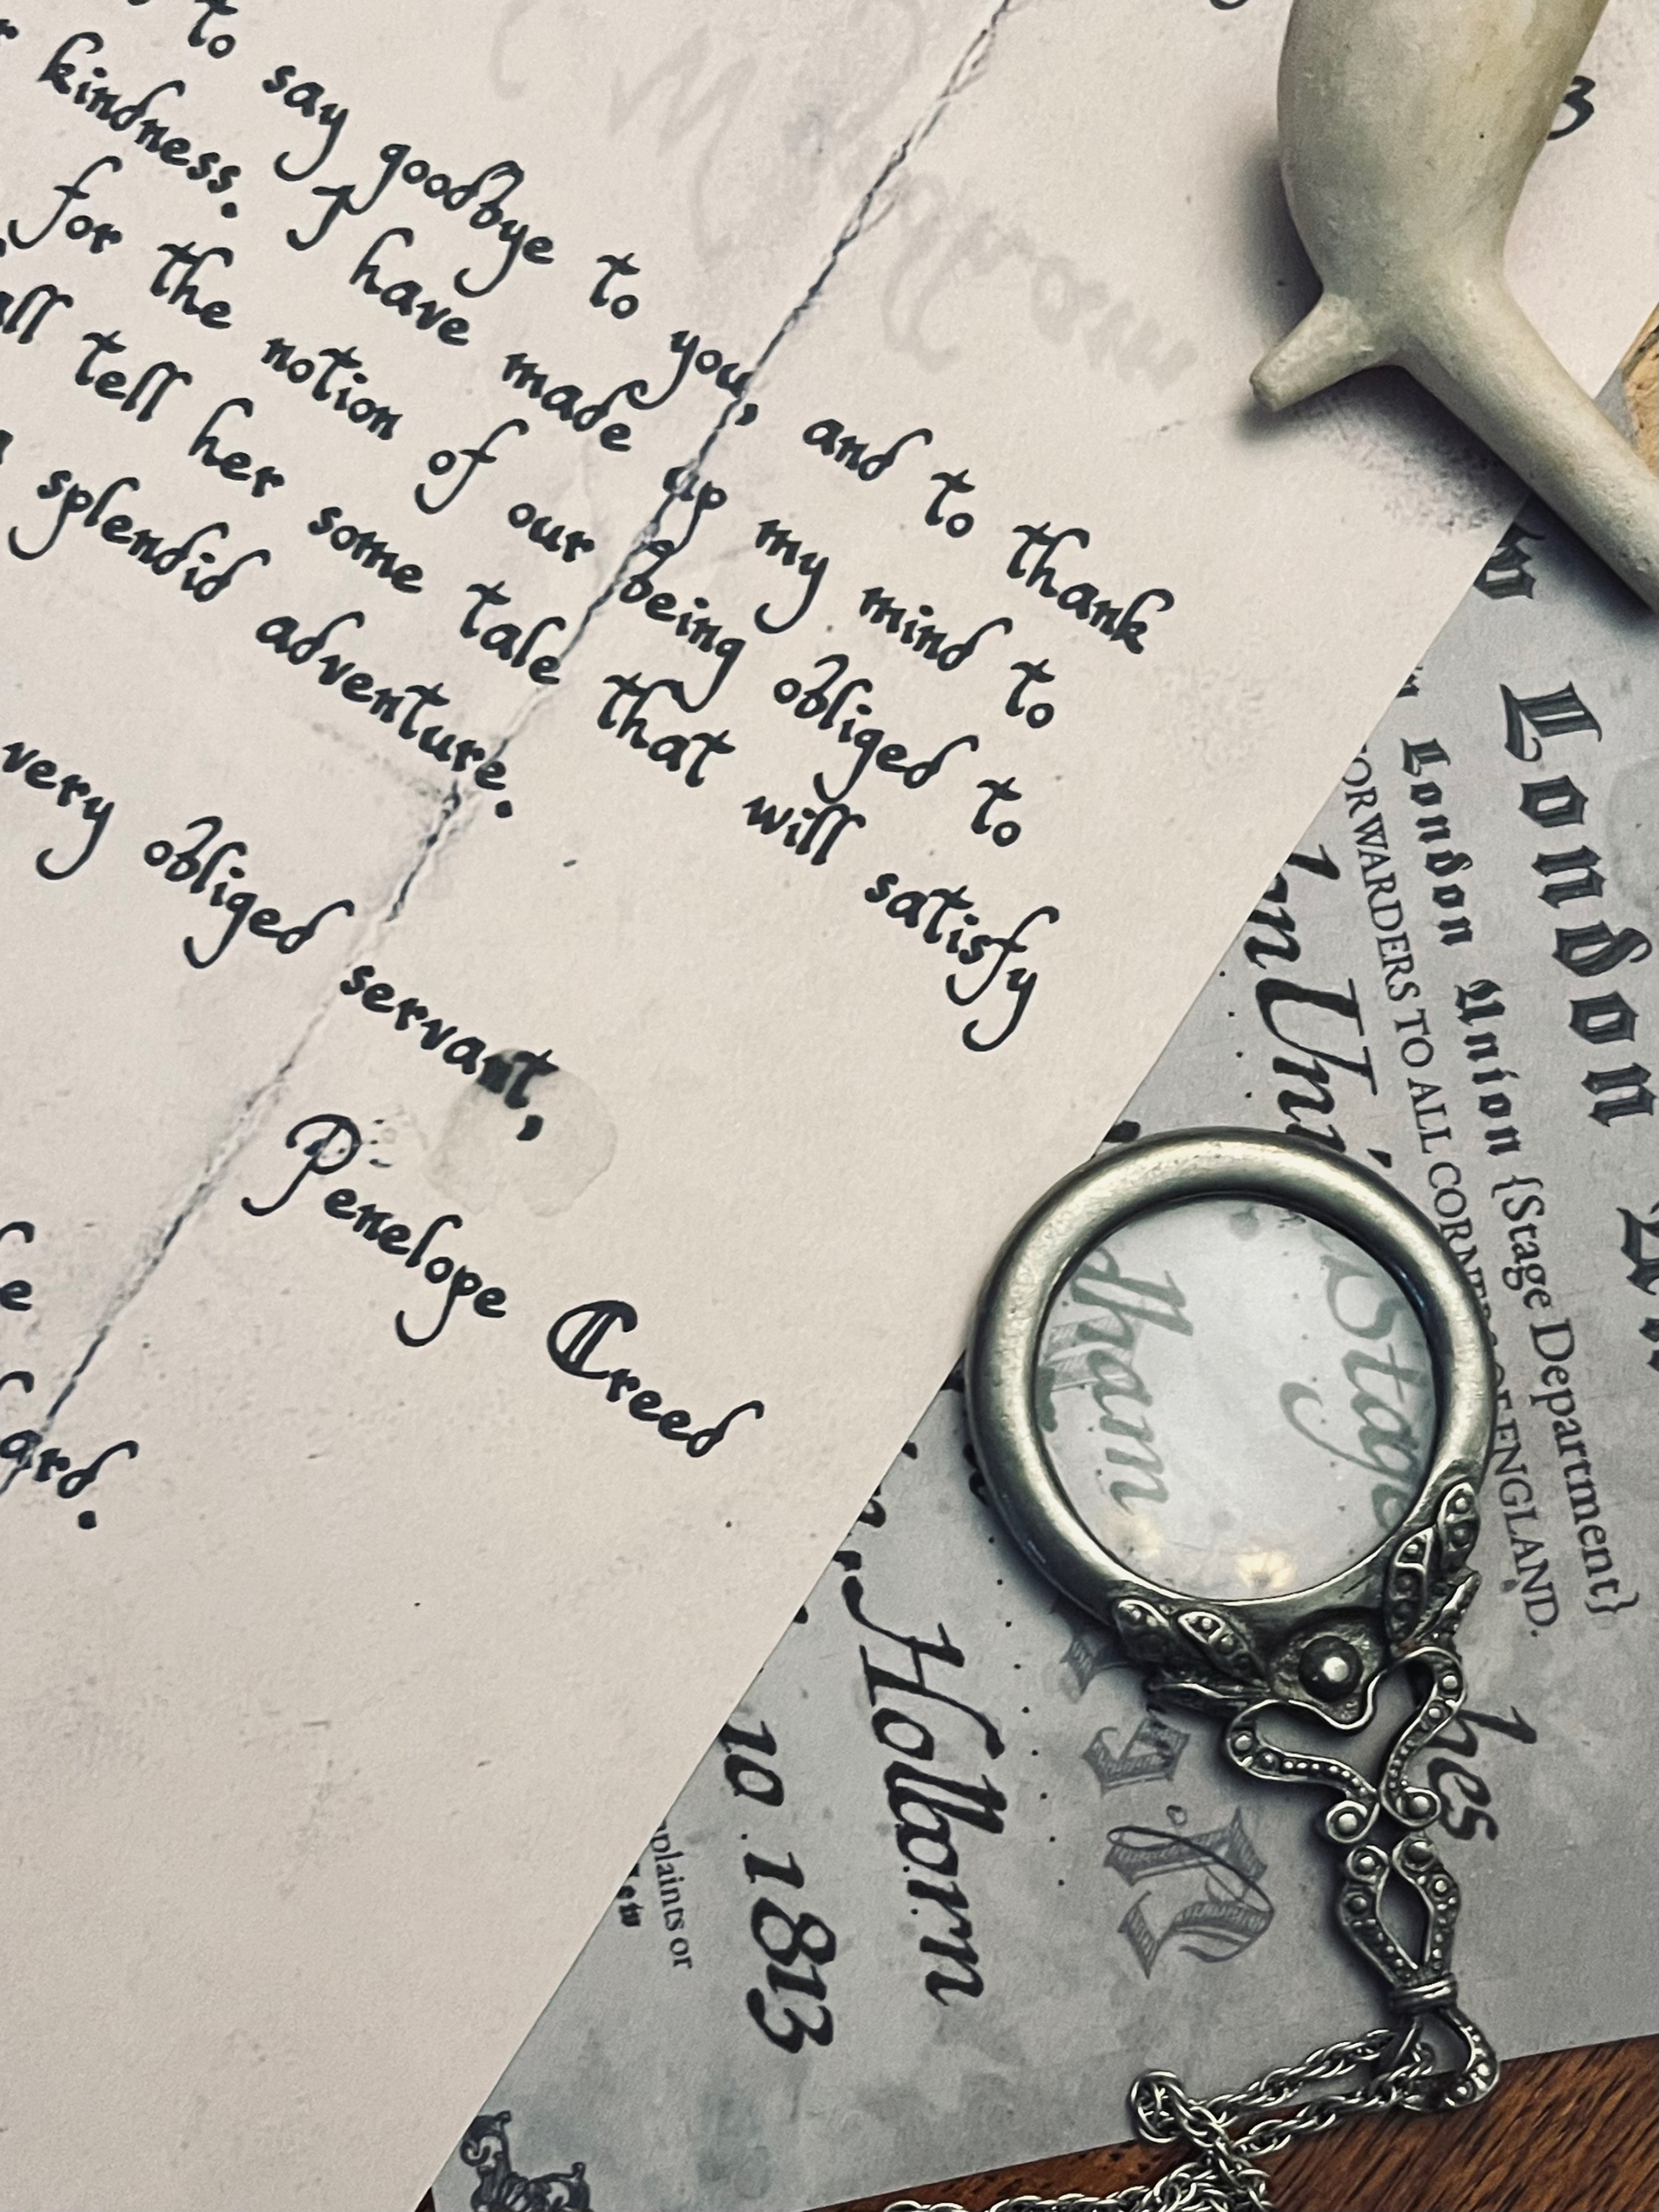 to say goodbye to you, and to thank
kindness. I have made up my mind to
for the notion of our being obliged to
tell her some tale that will satisfy
splendid adventure.
very obliged servant,
Penelope Creed
ard.
3
London
London Union {Stage Department}
FORWARDERS TO ALL CORNERS OF ENGLAND.
Uni
Stage
dham
hes
Holborn
10 . 1813
plaints or